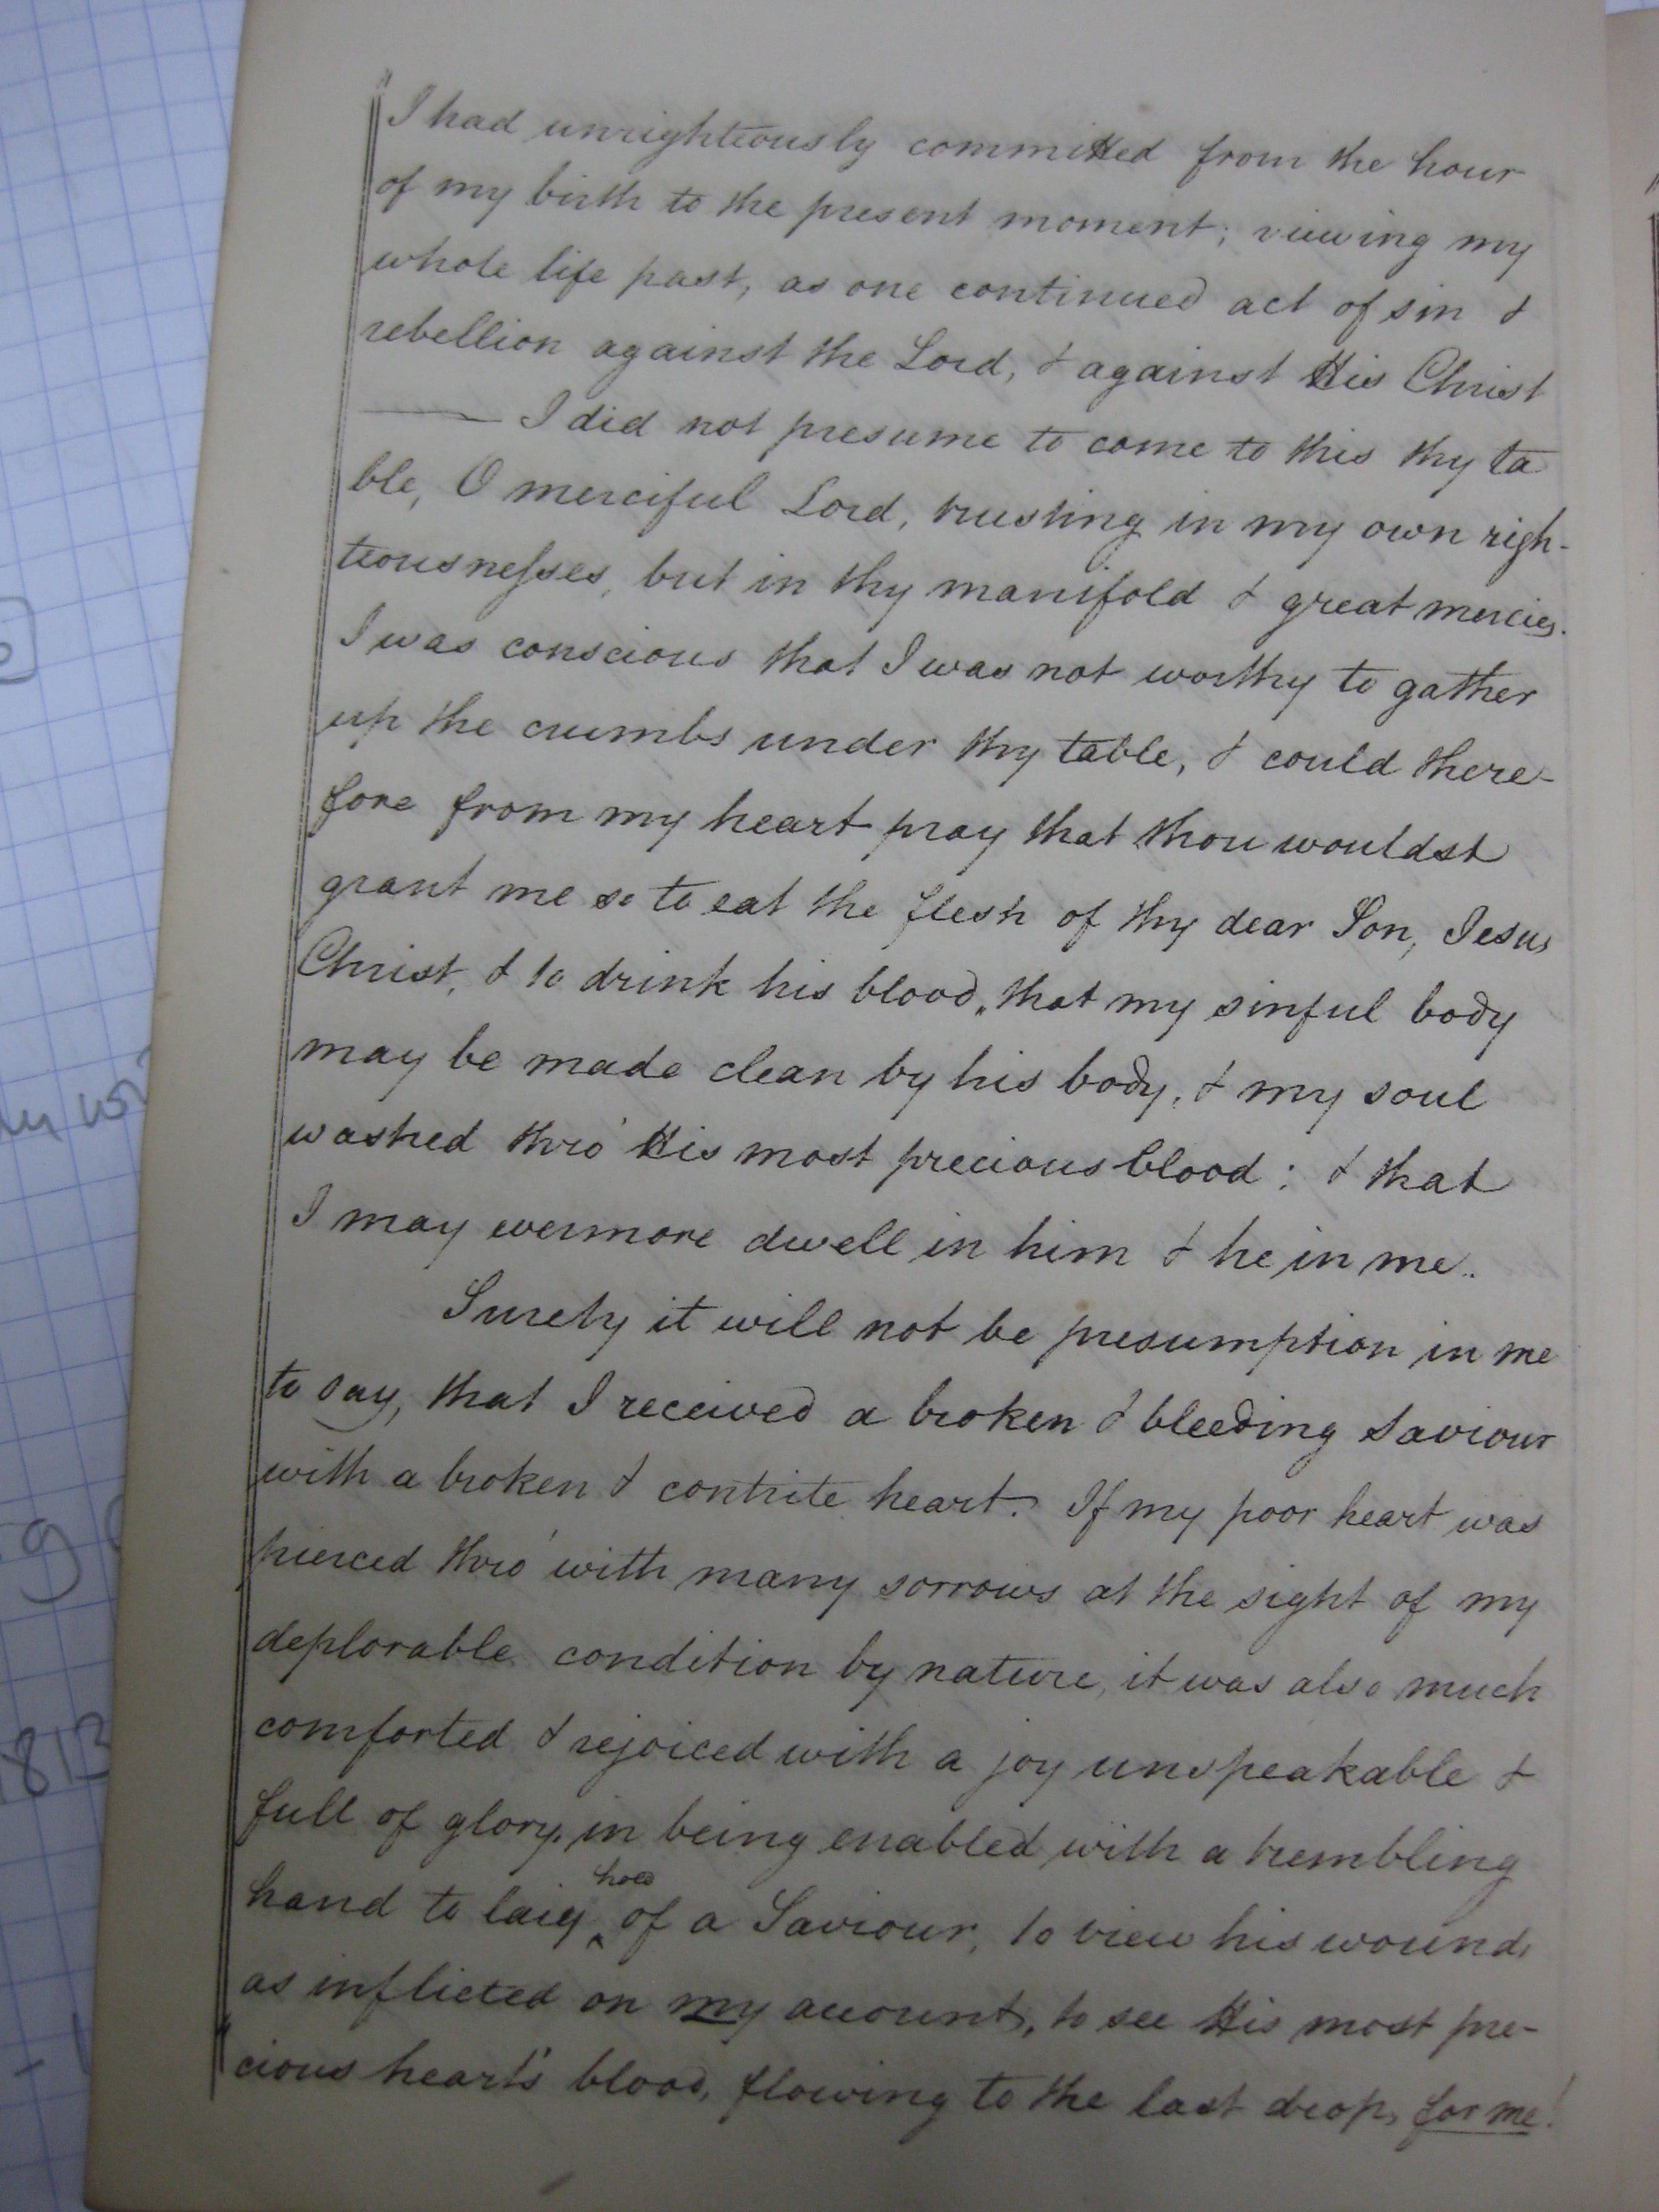 I had unrighteously committed from the hour
of my birth to the present moment; viewing my
whole life past, as one continued act of sin &
rebellion against the Lord, & against His Christ
—— I did not presume to come to this thy ta
ble, O merciful Lord, trusting in my own righ-
teousnesses, but in thy manifold & great mercies.
I was conscious that I was not worthy to gather
up the crumbs under thy table, & could there-
fore from my heart pray that thou wouldst
grant me so to eat the flesh of thy dear Son, Jesus
Christ, & to drink his blood, that my sinful body
may be made clean by his body, & my soul
washed thro' His most precious blood; & that
I may evermore dwell in him & he in me..
Surely it will not be presumption in me
to say, that I received a broken & bleeding Saviour
with a broken & contrite heart. If my poor heart was
pierced thro' with many sorrows at the sight of my
deplorable condition by nature, it was also much
comforted & rejoiced with a joy unspeakable &
full of glory, in being enabled with a trembling
hand to laiy hold of a Saviour, to view his wounds
as inflicted on my account, to see His most pre-
cious heart's blood, flowing to the last drop, for me!
1813